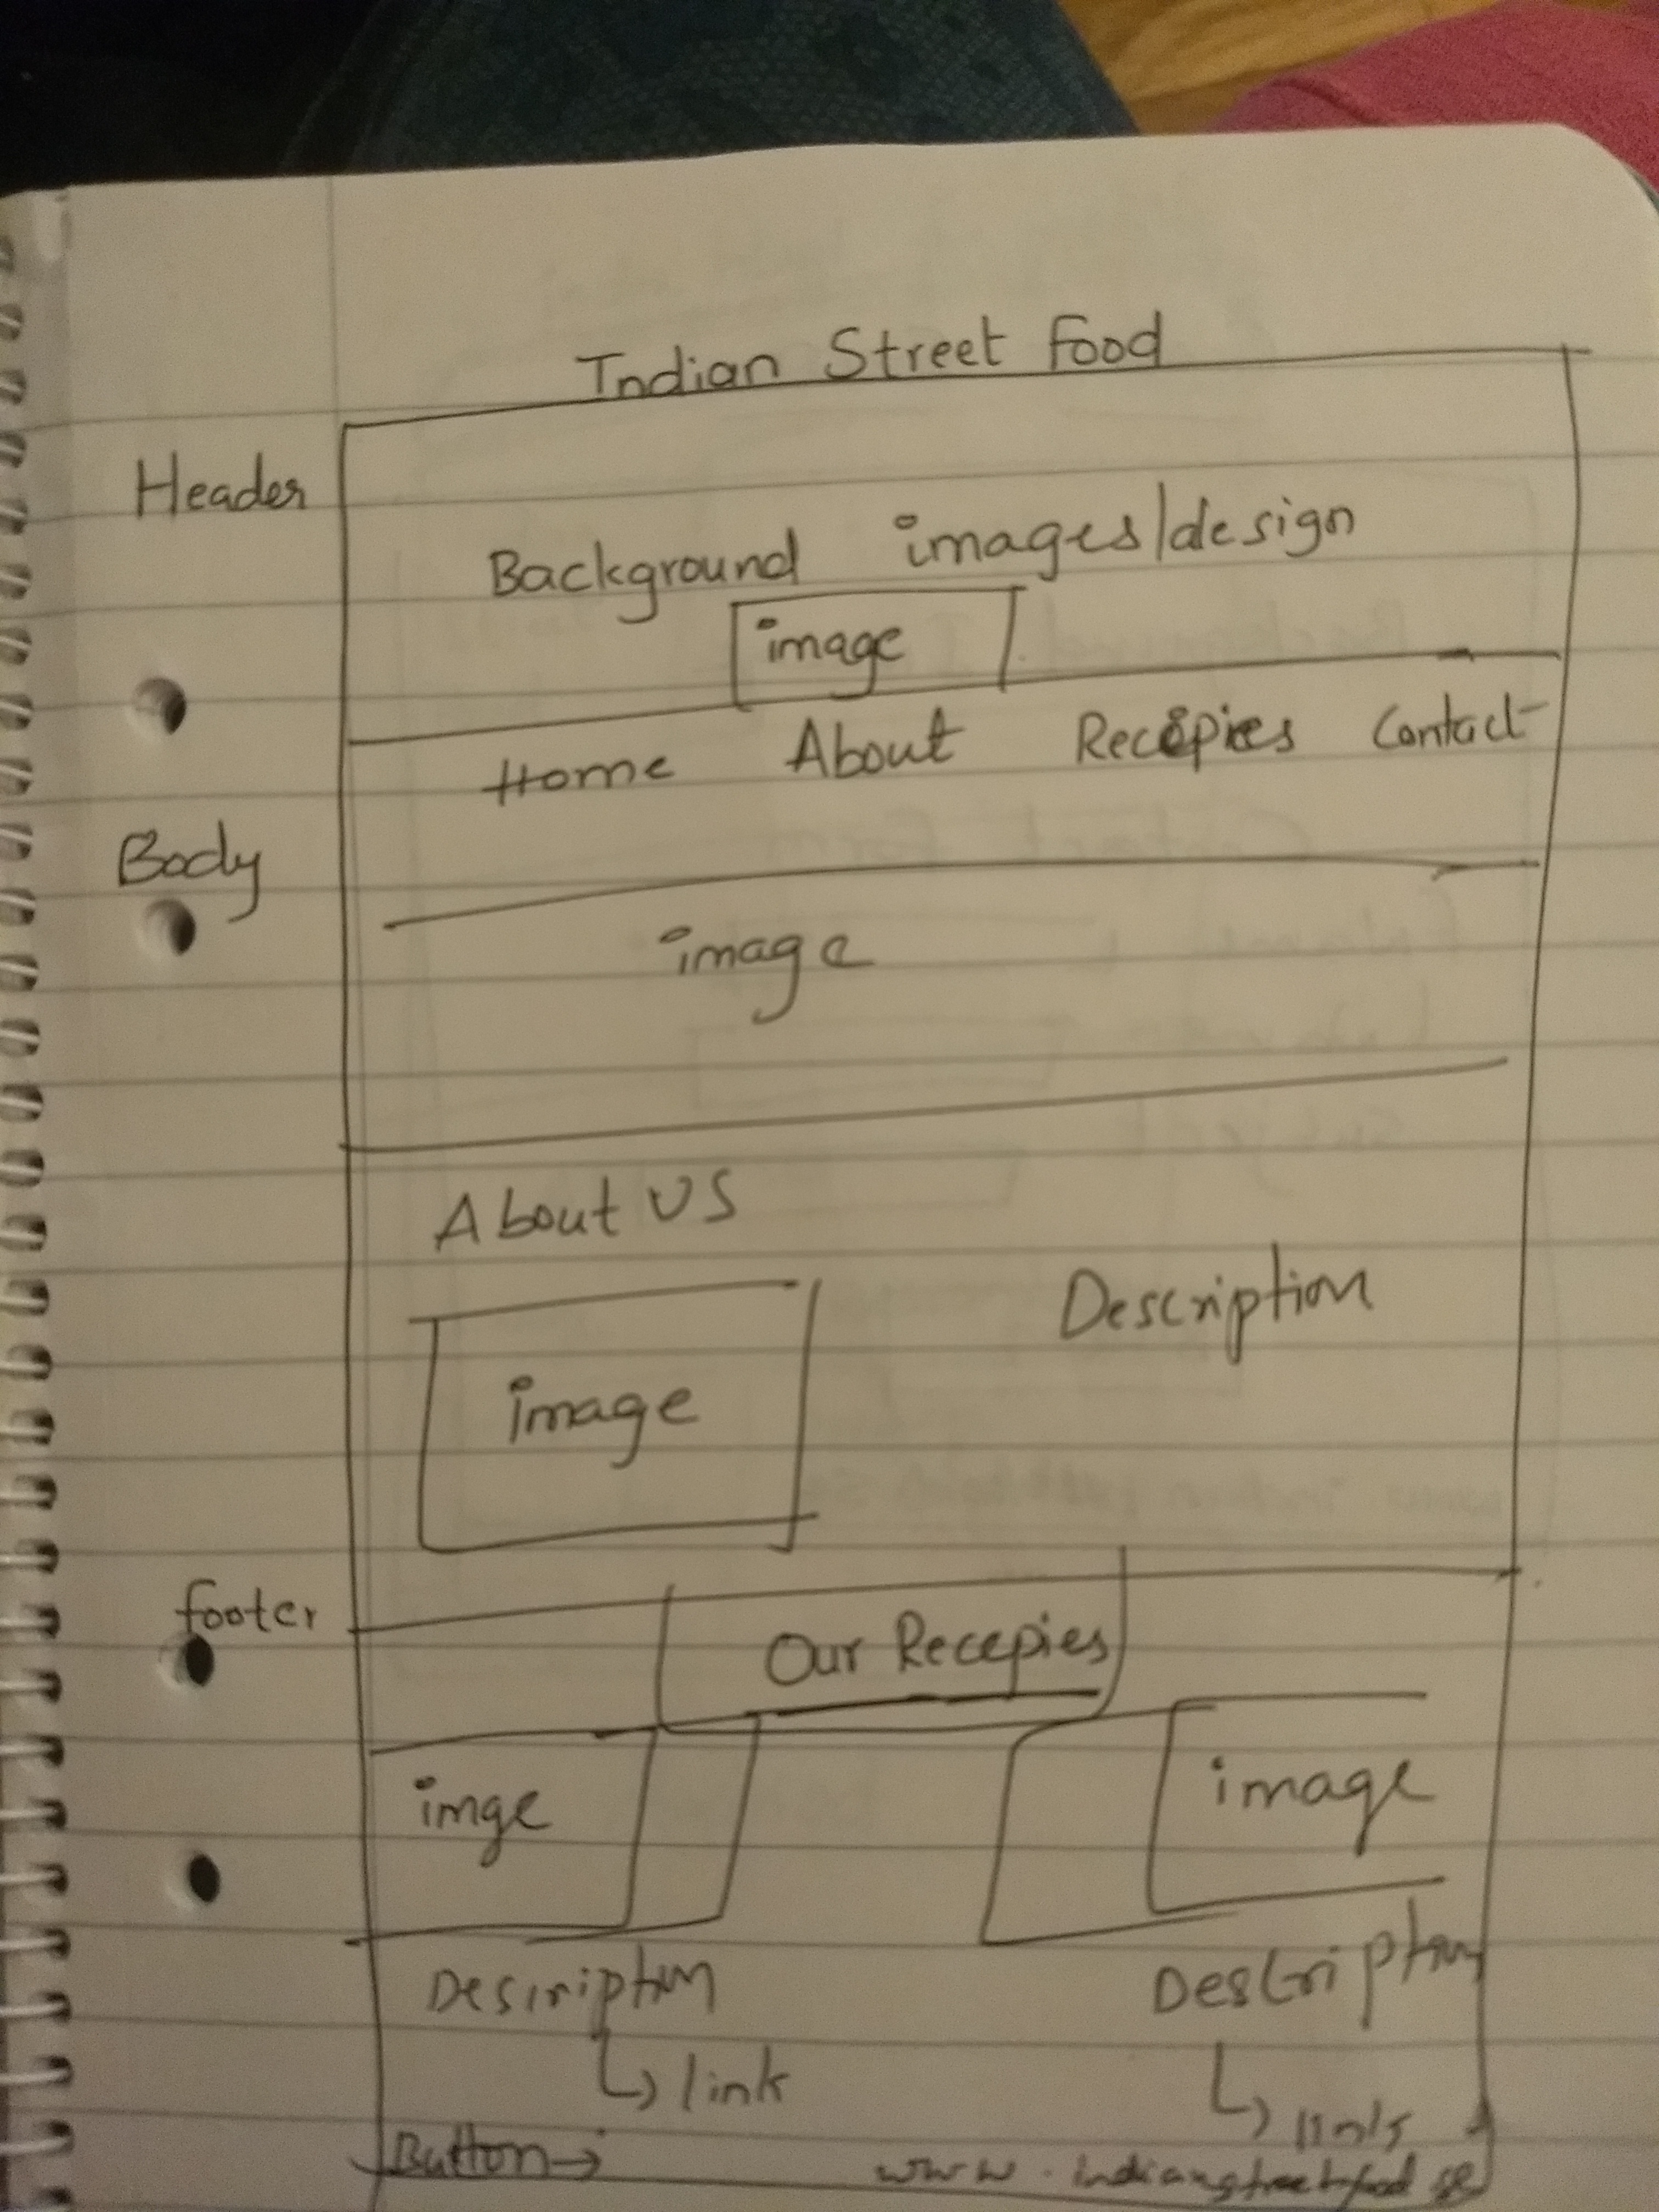 Indian Street Food
Header
Background images/design
image
Home About Recipies Contact
Body
image
About US
Description
image
footer
Our Recepies
imge
image
Description
Description
link
links
Button
www.indianstreetfood.se